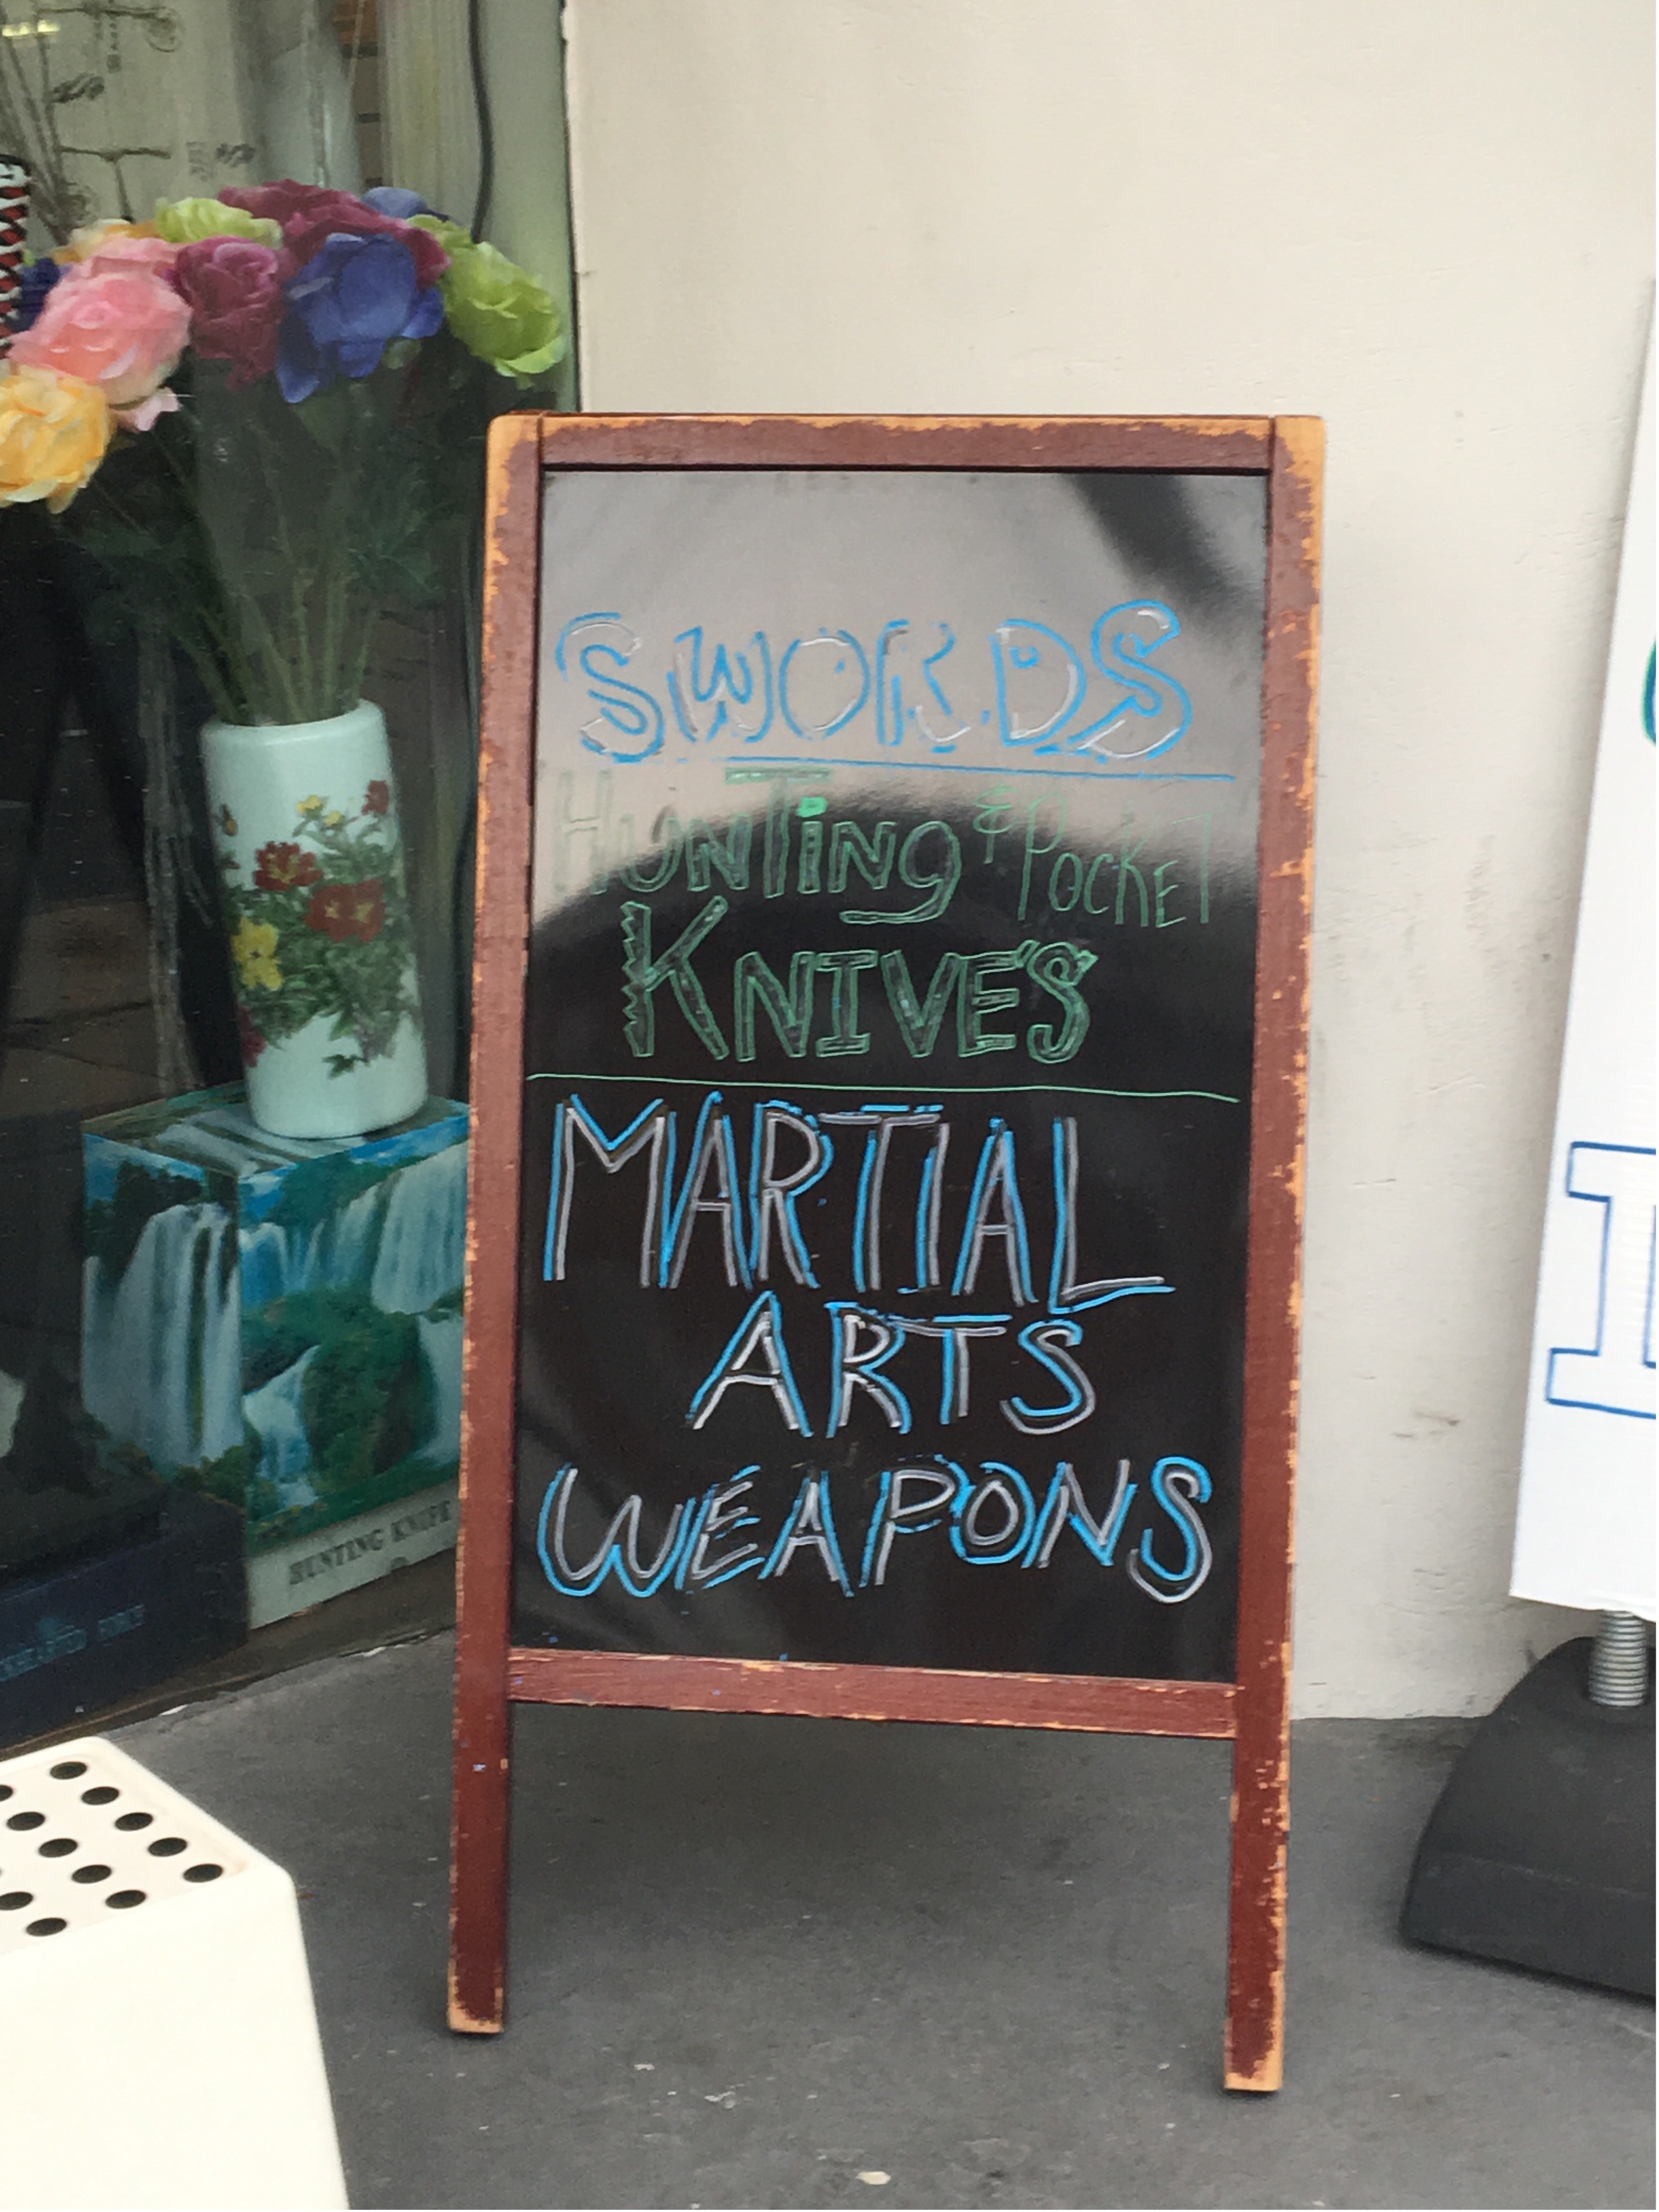 SWORDS
HUNTiNg & POCKET
KNIVE'S
MARTIAL
ARTS
WEAPONS
HUNTING KNIFE